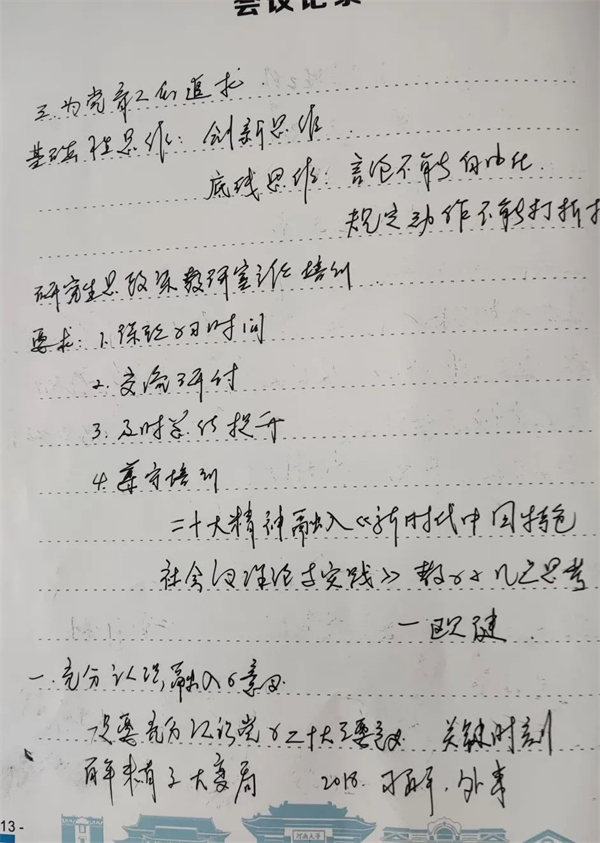 会议记录
三.为党育人的追求
基础性思维：创新思维
底线思维：言论不能自由化
规定动作不能打折扣
研究生思政课教研室主任培训
要求：1.保证的时间
2.交流研讨
3.及时总结提升
4.遵守培训
二十大精神融入《新时代中国特色
社会主义理论与实践》教学的几点思考
—欧健
一.充分认识,融入的意义
一定要充分认识党的二十大重要意义 关键时刻
百年未有之大变局 2018. 外事
13 -
河南大学